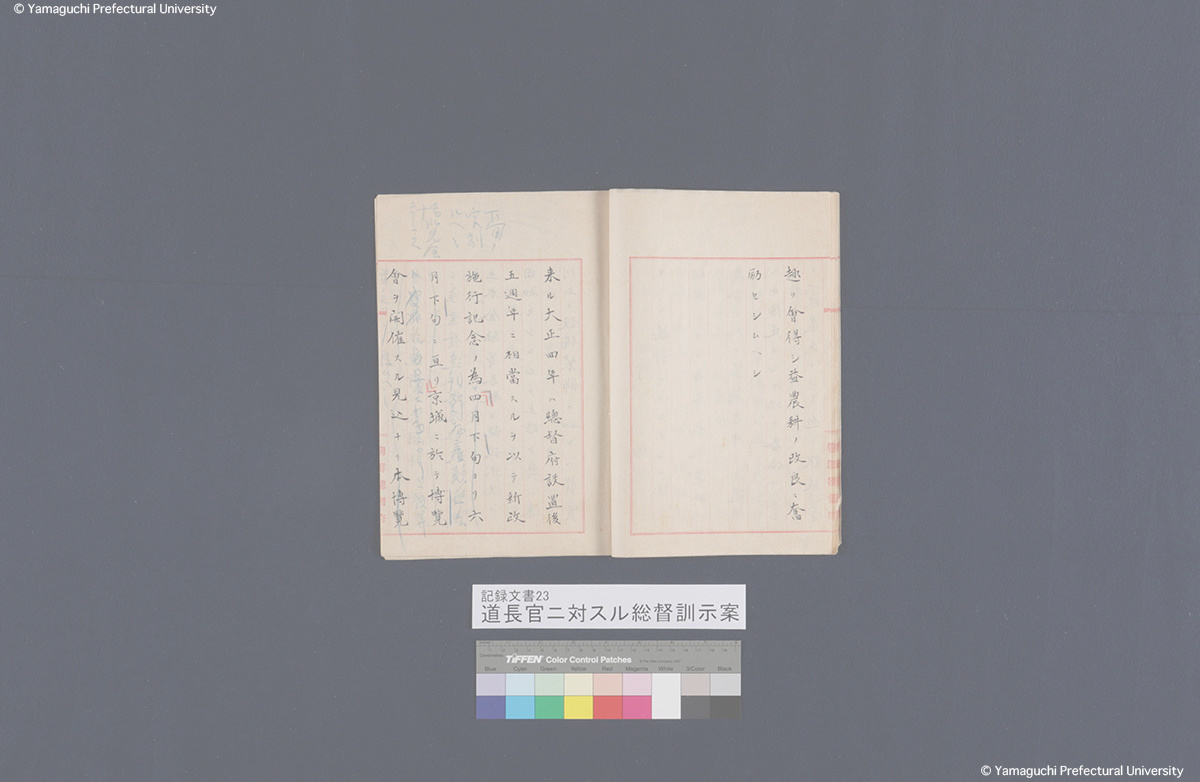 © Yamaguchi Prefectural University
趣ヲ會得シ益農耕ノ改良ニ奮
勵セシムヘシ
来ル大正四年ハ總督府設置後
五週年ニ相當スルヲ以テ新政
施行記念ノ為四月下旬ヨリ六
月下旬ニ亘リ京城ニ於テ博覧
會ヲ開催スル見込ナリ本博覧
記録文書23
道長官ニ対スル総督訓示案
TIFFEN Color Control Patches
Blue Cyan Green Yellow Red Magenta White 3/Color Black
© Yamaguchi Prefectural University